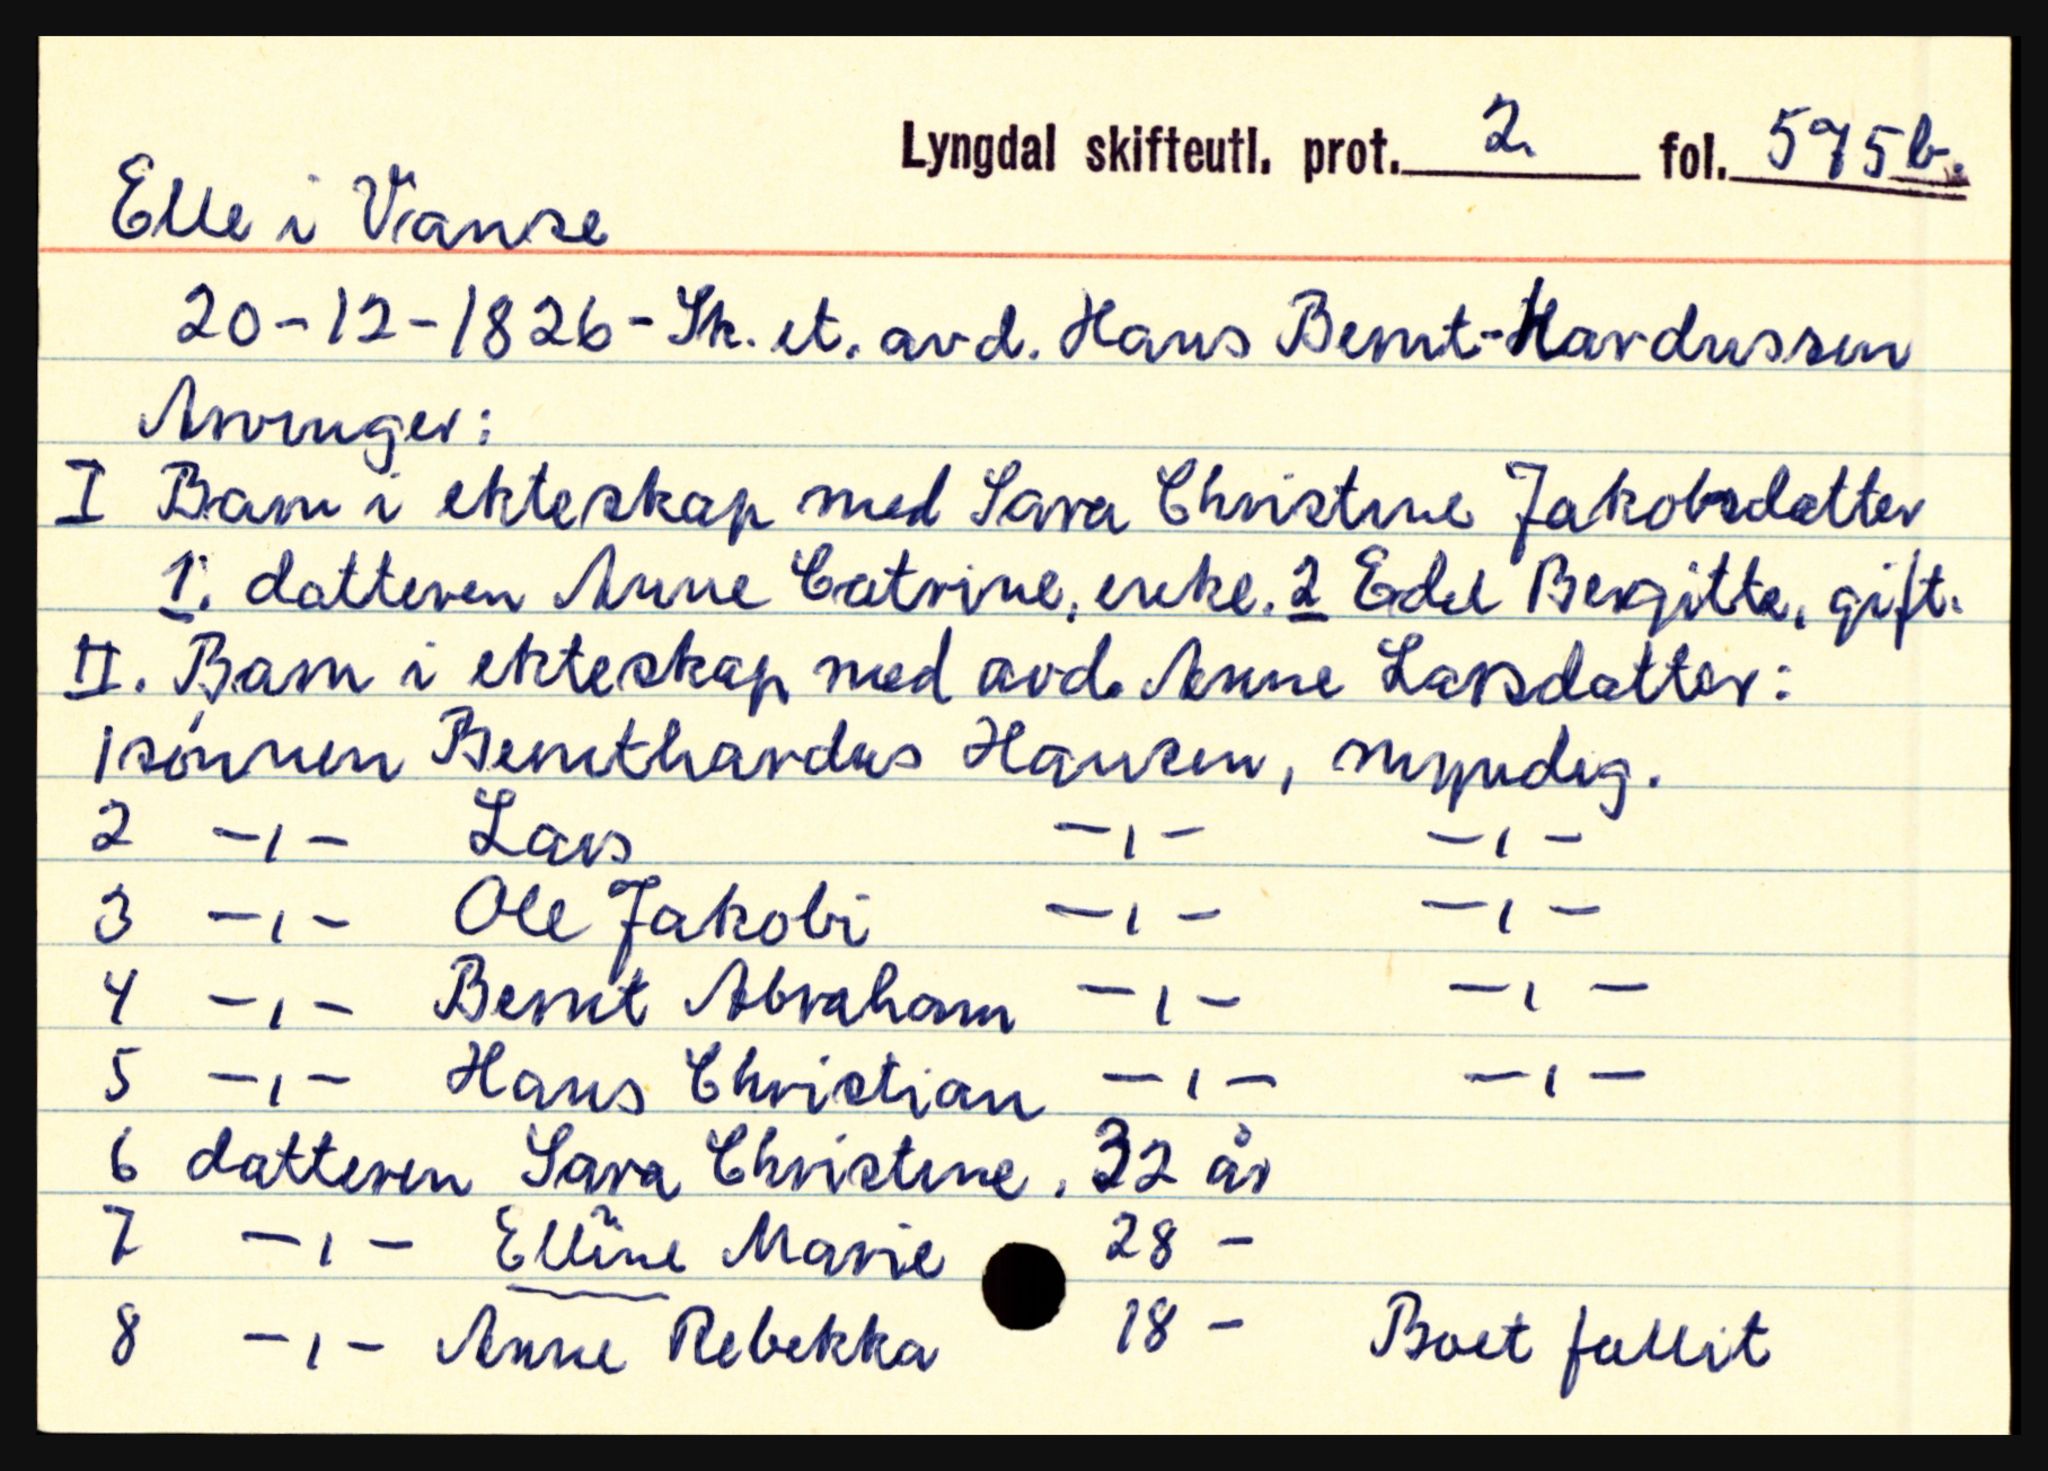 Lyngdal skifteutl. prot. 2. fol. 575b.
Elle i Vanse
20-12-1826 - Sk. et. avd. Hans Bernt-Hardussen
Arvinger:
I Barn i ekteskap med Sara Christine Jakobsdatter
1. datteren Anne Catrine, enke. 2 Edel Bergitte, gift.
II. Barn i ekteskap med avd. Anne Larsdatter:
1 sønnen Bernthardus Hansen, myndig.
2 -,- Lars -,- -,-
3 -,- Ole Jakobi -,- -,-
4 -,- Bernt Abraham -,- -,-
5 -,- Hans Christian -,- -,-
6 datteren Sara Christine. 32 år
7 -,- Elline Marie 28 -
8 -,- Anne Rebekka 18 - Boet fallit